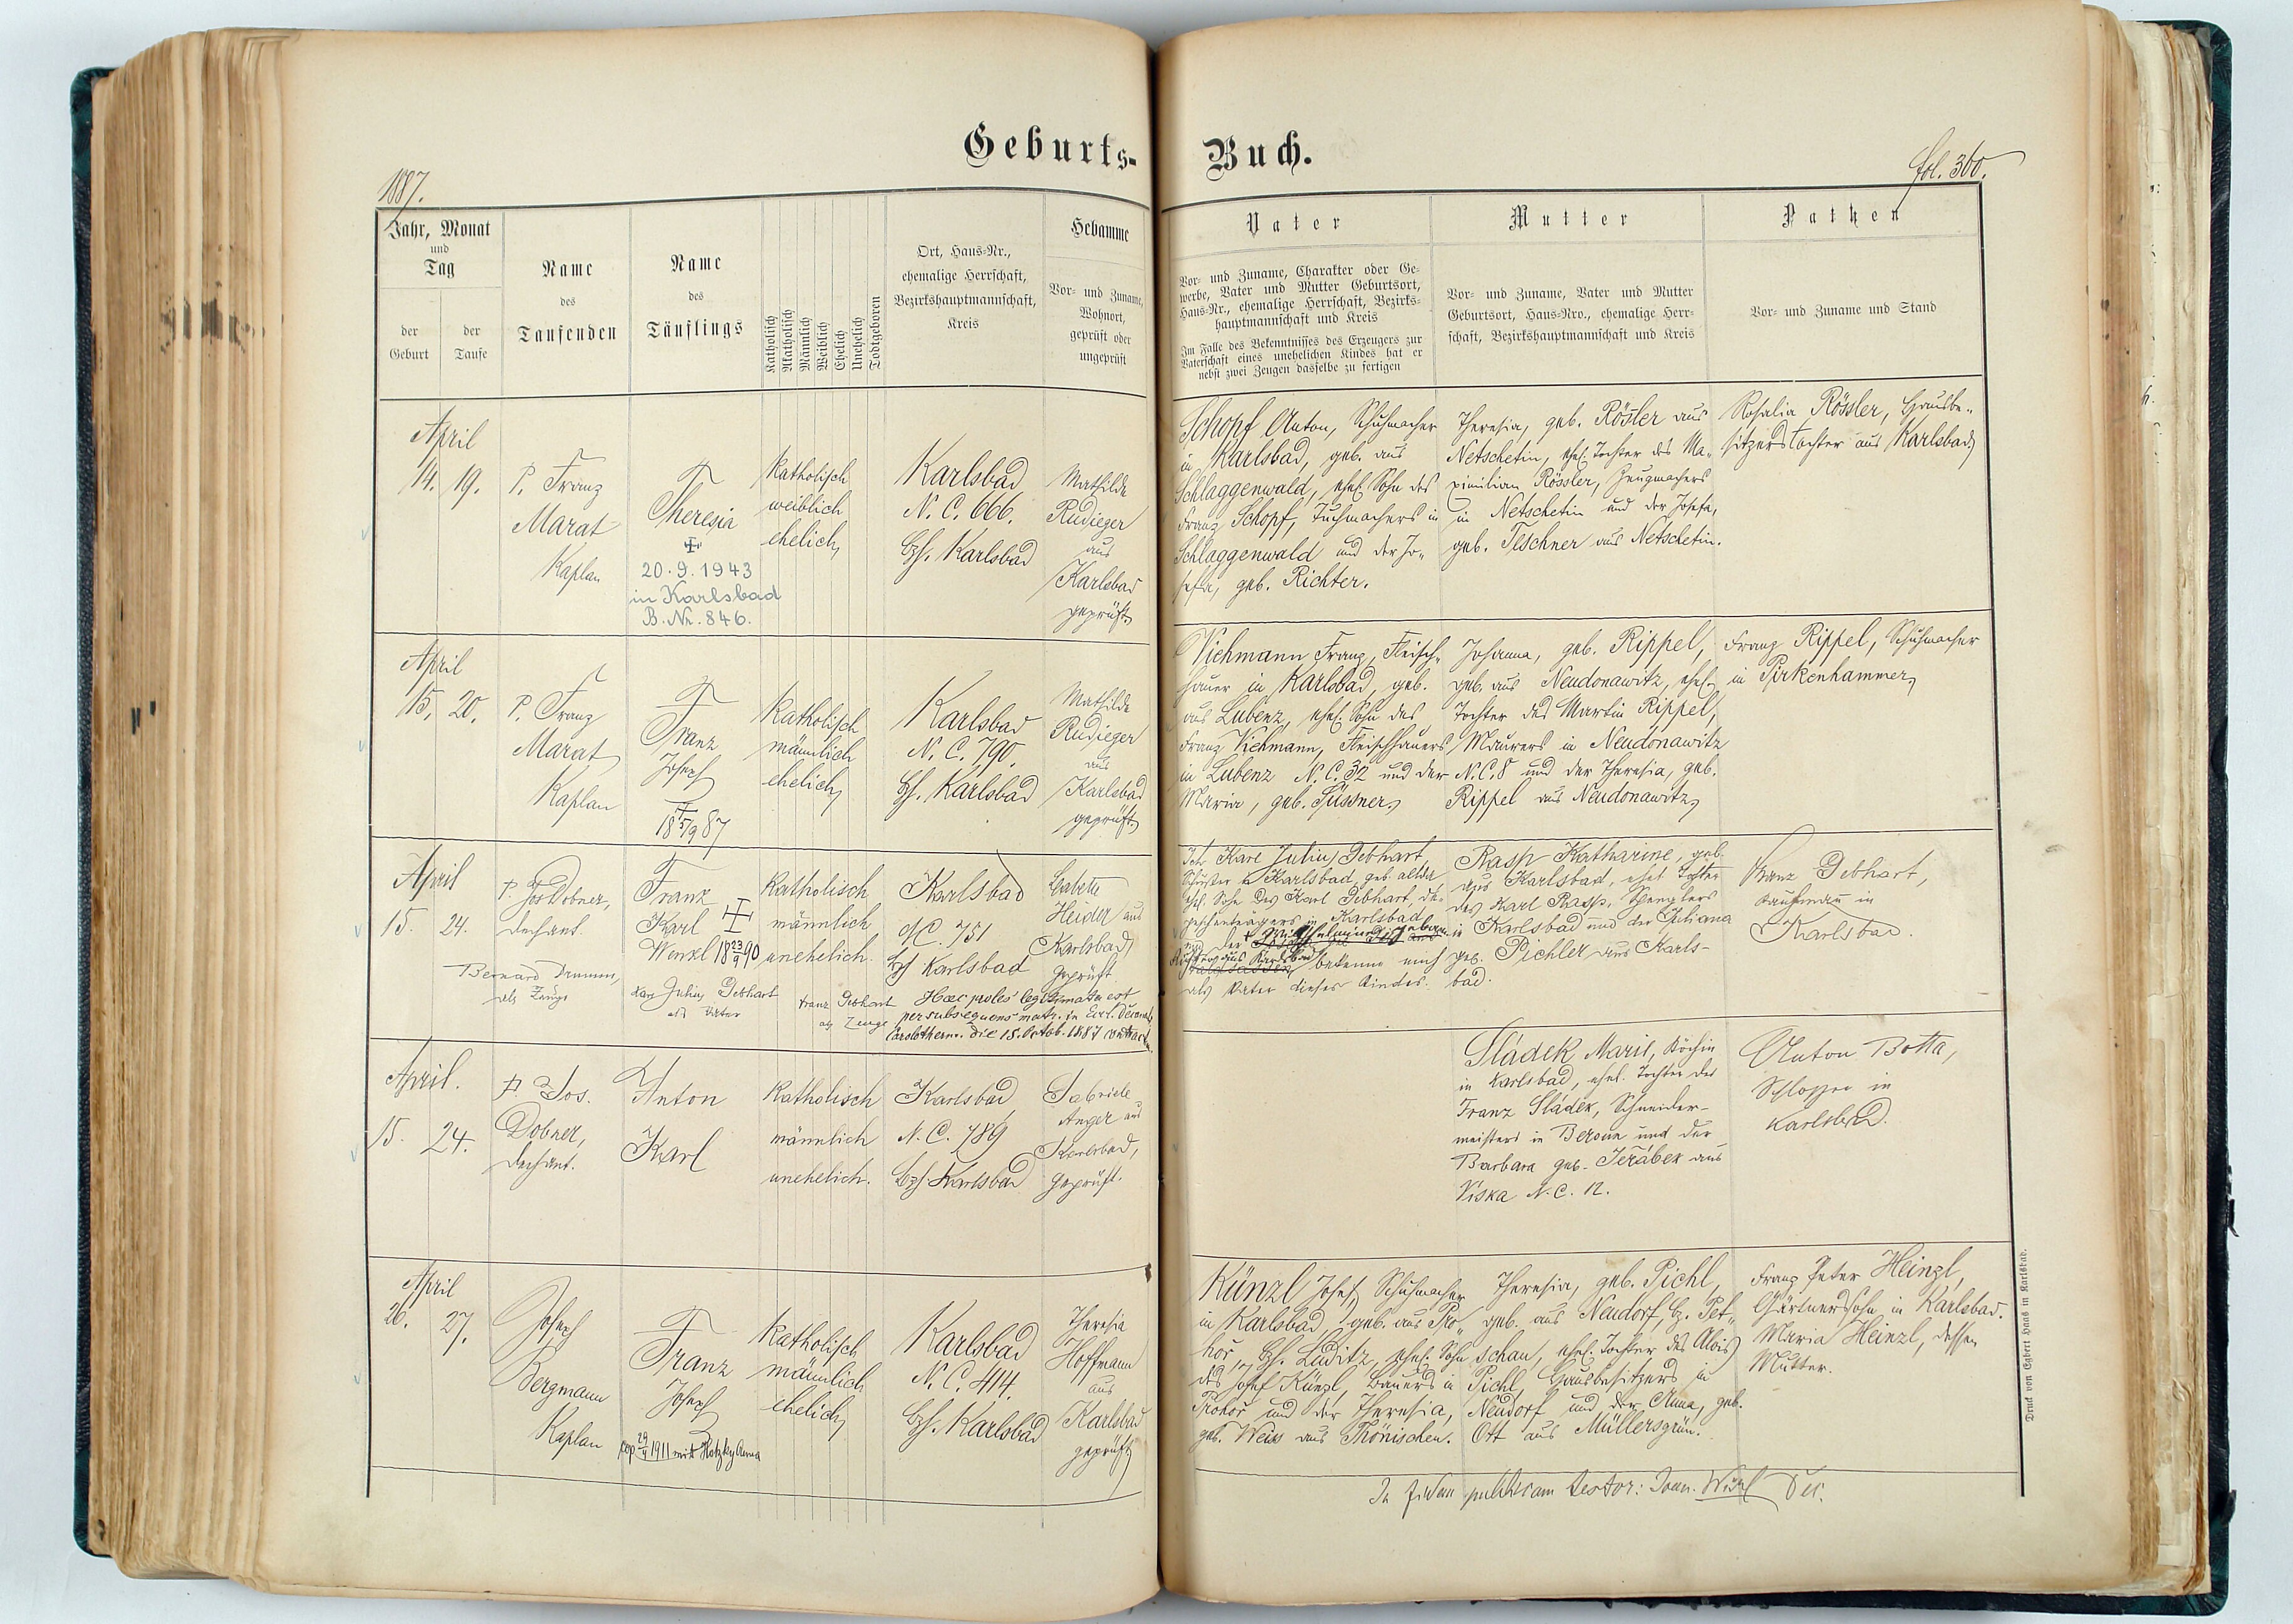 Geburts-
Buch.
1887.
fol. 360.
Jahr, Monat
und
Tag
der
Geburt
der
Taufe
Name
des
Taufenden
Name
des
Täuflings
Katholisch
Akatholisch
Männlich
Weiblich
Ehelich
Unehelich
Todtgeboren
Ort, Haus-Nr.,
ehemalige Herrschaft,
Bezirkshauptmannschaft,
Kreis
Hebamme
Vor- und Zuname,
Wohnort,
geprüft oder
ungeprüft
Vater
Vor- und Zuname, Charakter oder Ge-
werbe, Vater und Mutter Geburtsort,
Haus-Nr., ehemalige Herrschaft, Bezirks-
hauptmannschaft und Kreis
Im Falle des Bekenntnisses des Erzeugers zur
Vaterschaft eines unehelichen Kindes hat er
nebst zwei Zeugen dasselbe zu fertigen
Mutter
Vor- und Zuname, Vater und Mutter
Geburtsort, Haus-Nro., ehemalige Herr-
schaft, Bezirkshauptmannschaft und Kreis
Pathen
Vor- und Zuname und Stand
April
14. 19.
P. Franz
Marat
Kaplan
Theresia
20.9.1943
in Karlsbad
B. Nr. 846.
katholisch
weiblich
ehelich
Karlsbad
N. C. 666.
Bzh. Karlsbad
Mathilde
Rudieger
aus
Karlsbad
geprüft
Schopf Anton, Schuhmacher
in Karlsbad, geb. aus
Schlaggenwald, ehel. Sohn des
Franz Schopf, Tuchmachers in
Schlaggenwald und der Jo-
sefa, geb. Richter.
Theresia, geb. Rösler aus
Netschetin, ehel. Tochter des Ma-
ximilian Rössler, Zeugmachers
in Netschetin und der Josefa,
geb. Teschner aus Netschetin.
Rosalia Rössler, Hausbe-
sitzerstochter aus Karlsbad
April
15. 20.
P. Franz
Marat
Kaplan
Franz
Josef
katholisch
männlich
ehelich
Karlsbad
N. C. 790.
Bzh. Karlsbad
Mathilde
Rudieger
aus
Karlsbad
geprüft
Viehmann Franz, Fleisch-
hauer in Karlsbad, geb.
aus Lubenz, ehel. Sohn des
Franz Viehmann, Fleischhauers
in Lubenz N. C. 32 und der
Maria, geb. Füssner
Johanna, geb. Rippel,
geb. aus Neudonawitz, ehel.
Tochter des Martin Rippel,
Maurers in Neudonawitz
N. C. 8 und der Theresia, geb.
Rippel aus Neudonawitz
Franz Rippel, Schuhmacher
in Pirkenhammer
April
15. 24.
P. Jos Dobner,
Dechant.
Bernard
als Zeuge
Franz
Karl
Wenzl 18 23/9 90
Karl Julius Gebhart
als Vater
katholisch
männlich
unehelich.
Franz Gebhart
als Zeuge
Karlsbad
N. 751
Bzh Karlsbad
Haec proles legitimata est
per subsequens matr. in Eccl. Decanali
Carolotherm. die 15. Octob. 1887 contract.
Babette
Heider aus
Karlsbad
geprüft
Ich Karl Julius Gebhart,
in Karlsbad, geb. allda
ehel. Sohn des Karl Gebhart,
in Karlsbad
und der Wilhelmine geborn.
aus Karlsbad bekenne mich
als Vater dieses Kindes.
Rasp Katharine, geb.
aus Karlsbad, ehel Tochter
des Karl Rasp, Spenglers
in Karlsbad und der Juliana
geb. Pichler aus Karls-
bad.
Franz Gebhart,
Kaufmann in
Karlsbad.
April.
15. 24.
P. Jos.
Dobner,
Dechant.
Anton
Karl
katholisch
männlich
unehelich.
Karlsbad
N. C. 789
Bzh Karlsbad
Gabriele
Anger aus
Karlsbad,
geprüft.
Sládek Marie, Köchin
in Karlsbad, ehel. Tochter des
Franz Sládek, Schneider-
meisters in Beroun und der
Barbara geb. Jeřábek aus
Viska N. C. 12.
Anton Botta,
Schlosser in
Karlsbad.
April
26. 27.
Josef
Bergmann
Kaplan
Franz
Josef
cop 29/4 1911 mit Kotzky Anna
katholisch
männlich
ehelich
Karlsbad
N. C. 414.
Bzh. Karlsbad
Theresia
Hoffmann
aus
Karlsbad
geprüft
Künzl Josef, Schuhmacher
in Karlsbad, geb. aus Pro-
hor, Bzh. Luditz, ehel. Sohn
des Josef Künzl, Bauers in
Prohor und der Theresia,
geb. Weiss aus Thönischen.
Theresia, geb. Pichl,
geb. aus Neudorf, Bz. Pet-
schau, ehel. Tochter des Alois
Pichl, Hausbesitzers in
Neudorf und der Anna, geb.
Ott aus Müllersgrün.
Franz Peter Heinzl,
Gärtnerssohn in Karlsbad.
Maria Heinzl, dessen
Mutter.
In fidem publicam testor: Joan. Dec.
Druck von Egbert Haas in Karlsbad.